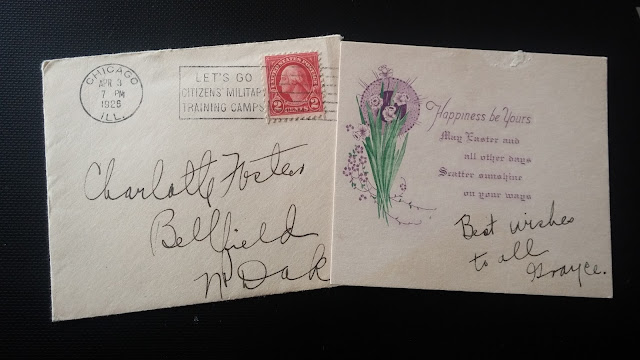 CHICAGO
APR 3
7 PM
1926
ILL.
LET'S GO
CITIZENS' MILITARY
TRAINING CAMPS
UNITED STATES POSTAGE
2 CENTS 2
Charlotte Foster
Bellfield
N Dak
Happiness be Yours
May Easter and
all other days
Scatter sunshine
on your ways
Best wishes
to all
Grayce.